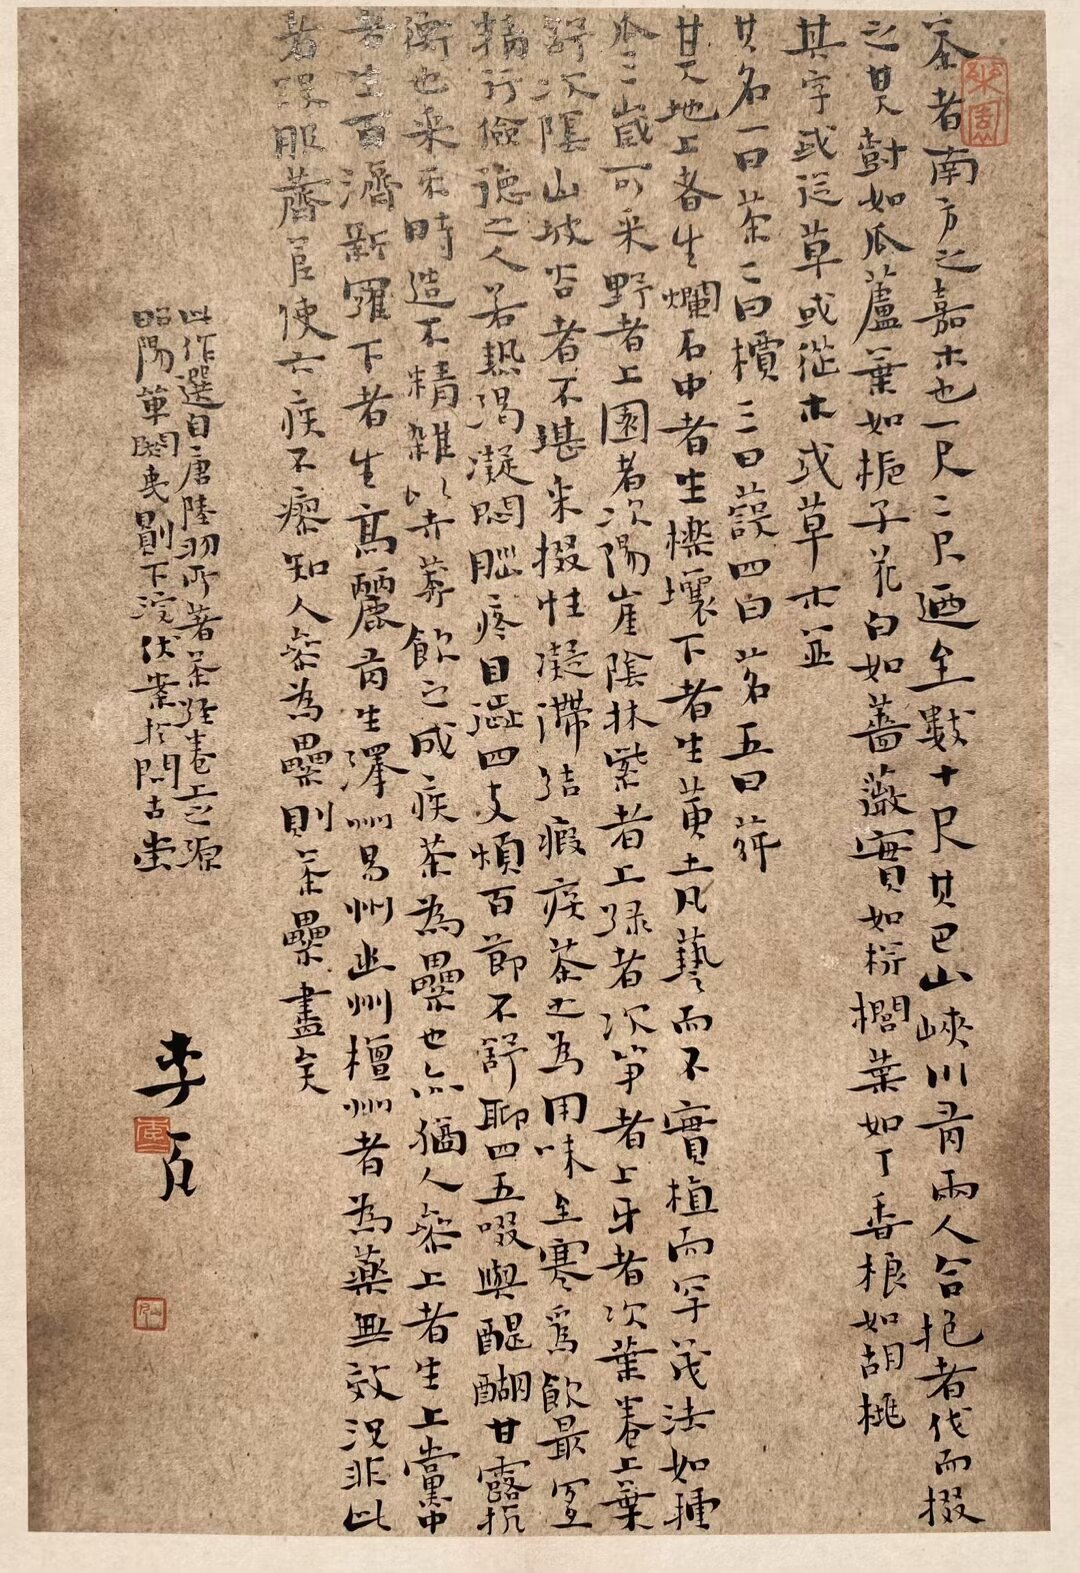 茶者南方之嘉木也一尺二尺迺至數十尺其巴山峽川有兩人合抱者伐而掇
之其樹如瓜蘆葉如梔子花白如薔薇實如栟櫚葉如丁香根如胡桃
其字或從草或從木或草木並
其名一曰茶二曰檟三曰蔎四曰茗五曰荈
其地上者生爛石中者生櫟壤下者生黃土凡藝而不實植而罕茂法如種
瓜三歲可采野者上園者次陽崖陰林紫者上綠者次笋者上牙者次葉卷上葉
舒次陰山坡谷者不堪采掇性凝滯結瘕疾茶之為用味至寒為飲最宜
精行儉德之人若熱渴凝悶腦疼目澀四支煩百節不舒聊四五啜與醍醐甘露抗
衡也采不時造不精雜以卉莽飲之成疾茶為纍也亦猶人參上者生上黨中
者生百濟新羅下者生高麗有生澤州易州幽州檀州者為藥無效況非此
者設服薺苨使六疾不瘳知人參為纍則茶纍盡矣
此作選自唐陸羽所著茶經卷上之源
昭陽單閼
下浣伏案於問古堂
李